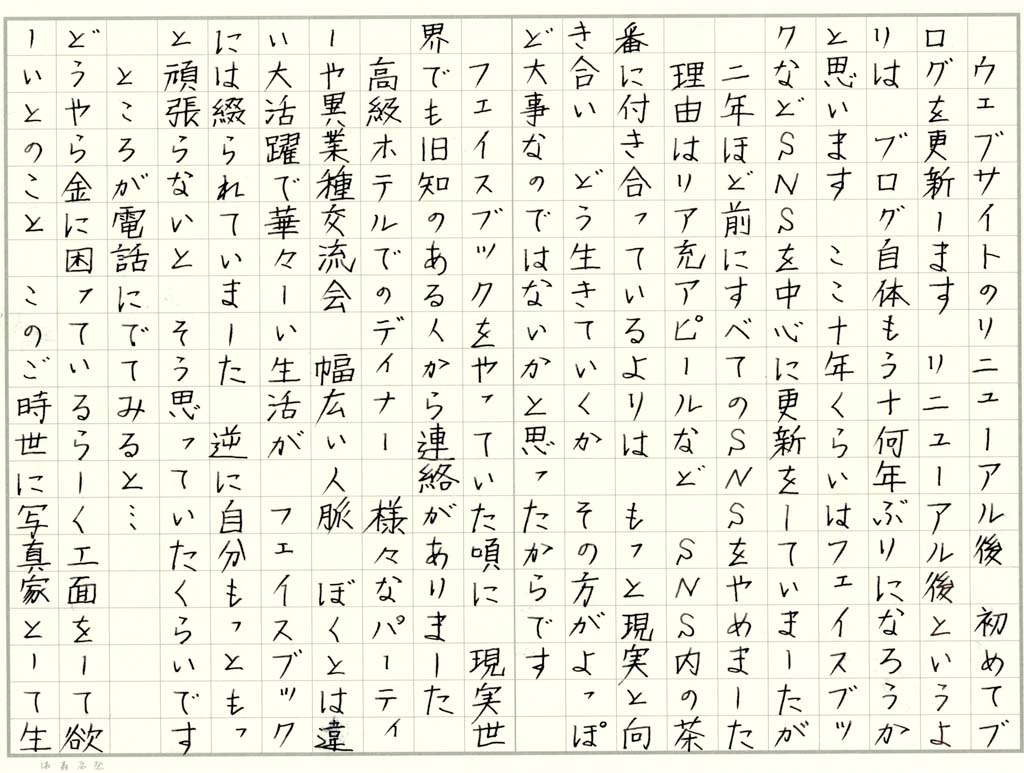 ウェブサイトのリニューアル後　初めてブ
ログを更新します　リニューアル後というよ
りは　ブログ自体もう十何年ぶりになろうか
と思います　ここ十年くらいはフェイスブッ
クなどSNSを中心に更新をしていましたが
二年ほど前にすべてのSNSをやめました
理由はリア充アピールなど　SNS内の茶
番に付き合っているよりは　もっと現実と向
き合い　どう生きていくか　その方がよっぽ
ど大事なのではないかと思ったからです
フェイスブックをやっていた頃に　現実世
界でも旧知のある人から連絡がありました
高級ホテルでのディナー　様々なパーティ
ーや異業種交流会　幅広い人脈　ぼくとは違
い大活躍で華々しい生活が　フェイスブック
には綴られていました　逆に自分もっともっ
と頑張らないと　そう思っていたくらいです
ところが電話にでてみると…
どうやら金に困っているらしく工面をして欲
しいとのこと　このご時世に写真家として生